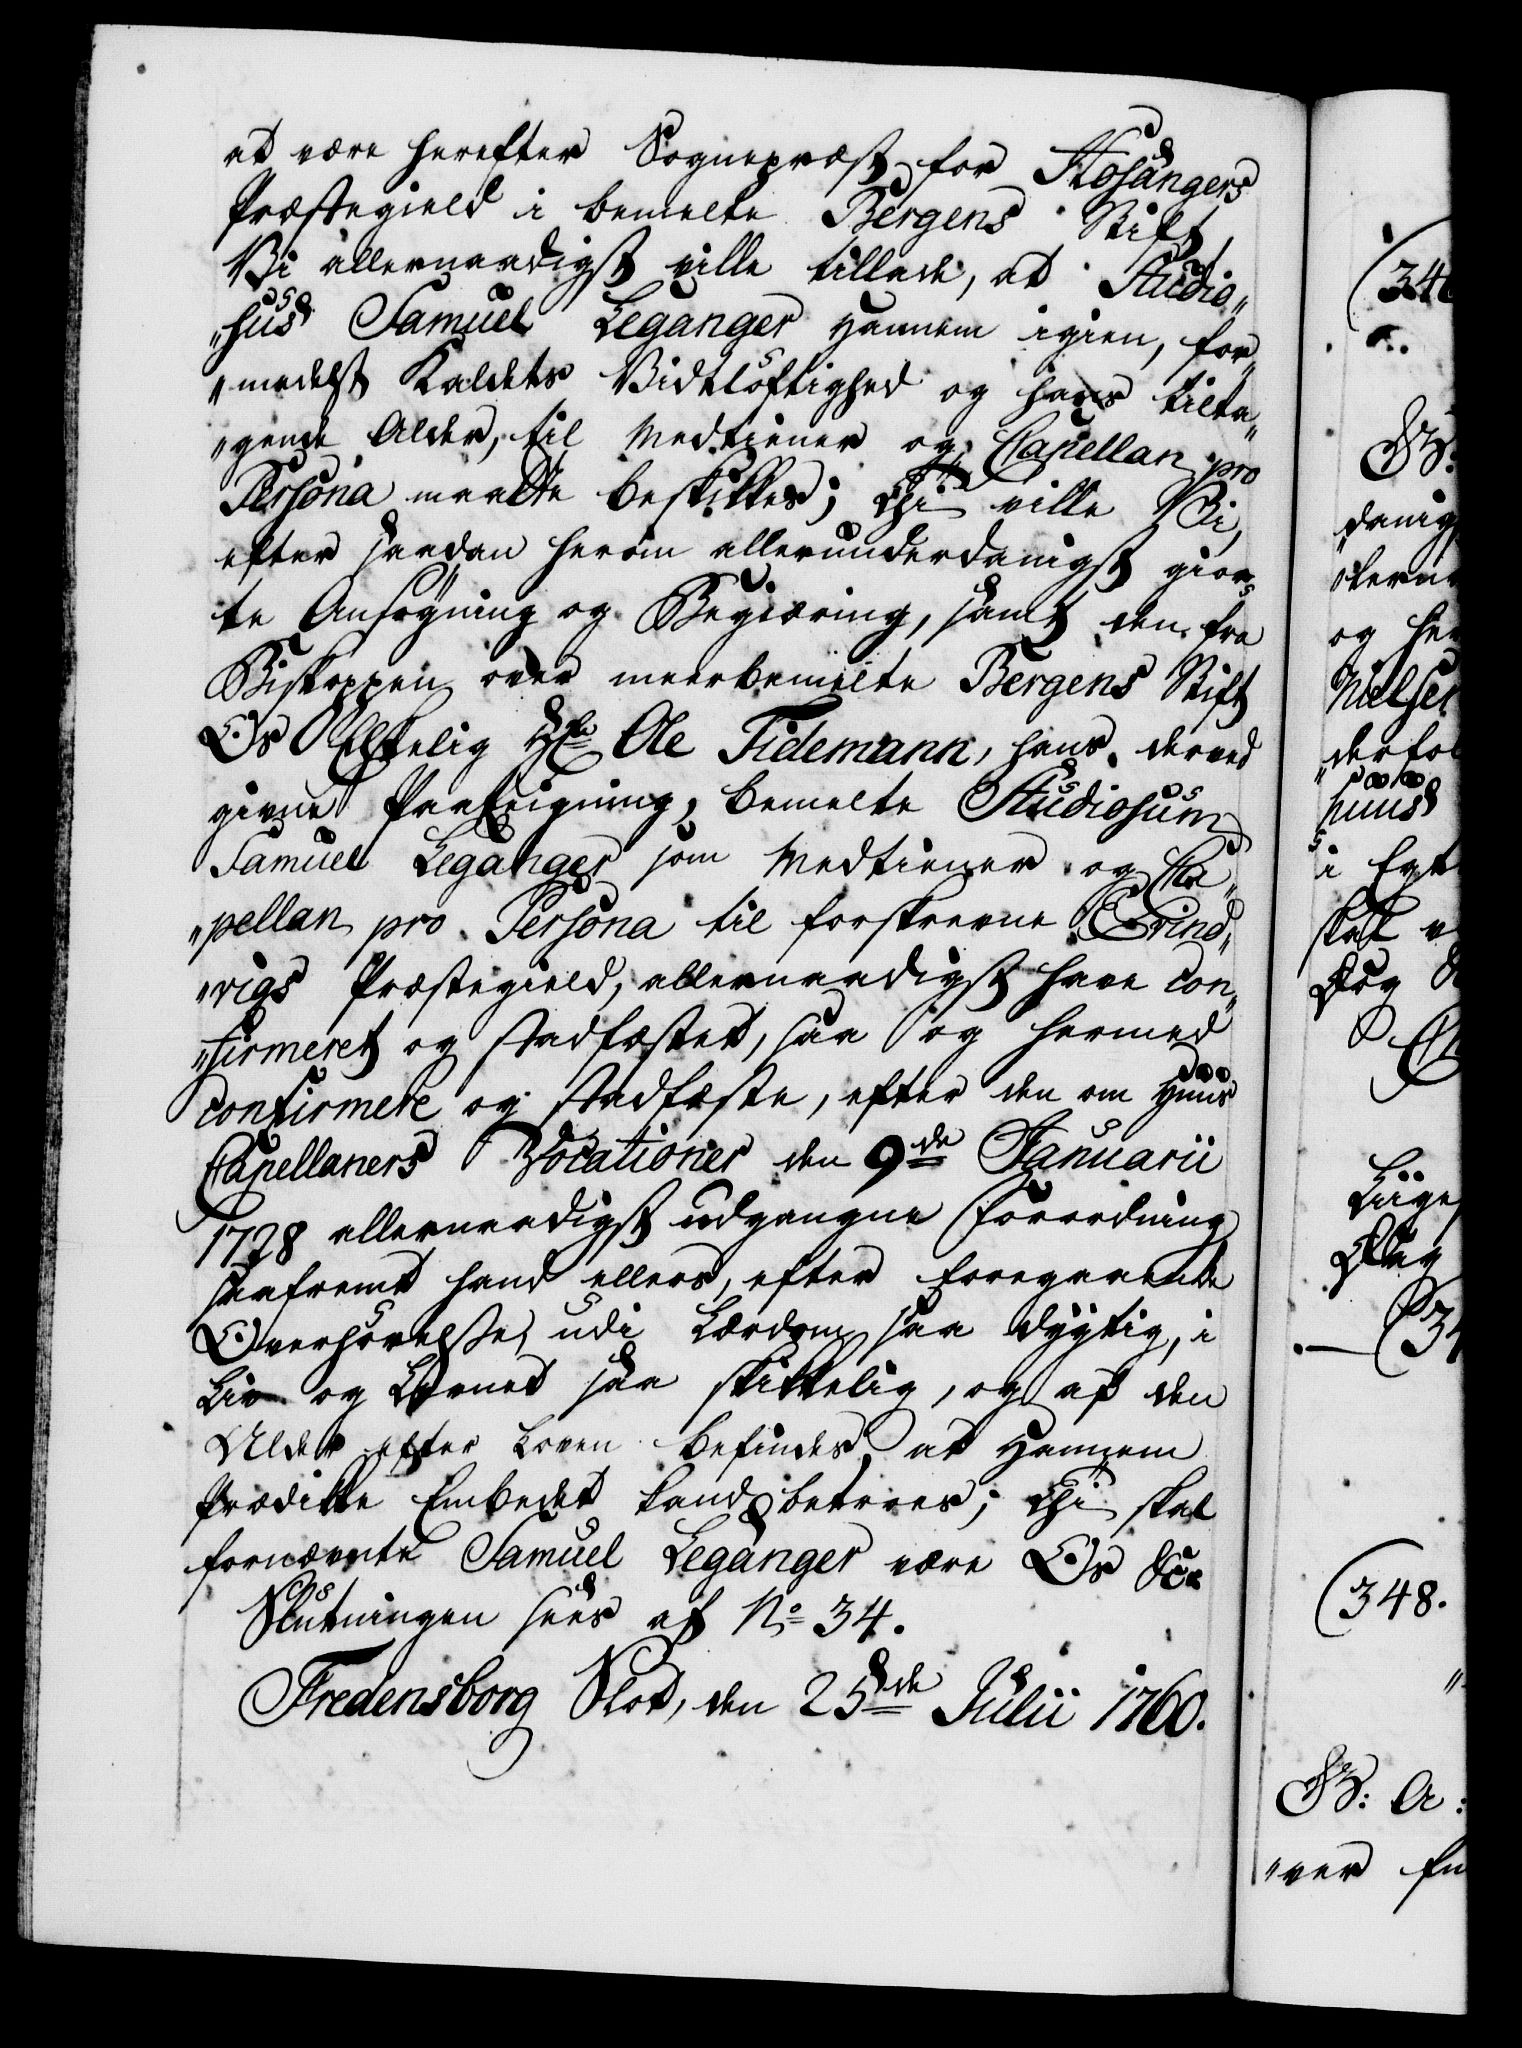 at være herefter Sognepræst for Hosangers
Præstegield i bemelte Bergens Stift,
Vi allernaadigst ville tillade, at Studio„
„sus Samuel Leganger hannem igien, for„
„medelst Kaldets Vidtløftighed og hans tilta„
„gende Alder, til Medtiener og Capellan pro
Persona maatte beskikkes; Thi ville Vi,
efter saadan herom allerunderdanigst gior„
te Ansøgning og Begiæring, samt den fra
Biskoppen over meerbemelte Bergens Stift
Os Elskelig Hr Ole Tidemann, hans derved
givne Paategning, bemelte Studiosum
Samuel Leganger som Medtiener og Ca„
„pellan pro Persona til forskrevne Evind„
„vigs Præstegield, allernaadigst have con„
„firmeret og stadfæstet, saa og hermed
confirmere og stadfæste, efter den om Huus
Capellaners Vocationer den 9de Januarii
1728 allernaadigst udgangne Forordning
saafremt hand ellers, efter foregaaende
Overhørelse, udi Lærdom saa dygtig, i
Liv og Levnet saa skikkelig, og af den
Alder efter Loven befindes, at hannem
Prædike Embedet kand betroes; Thi skal
fornævnte Samuel Leganger være Os &c:
Slutningen sees af No 34.
Fredensborg Slot, den 25de Julii 1760.
(346
danig
og her
Nielsen
„derfol
huus
skal
Dog
Liige
(34
(348.
G: A:
„ver